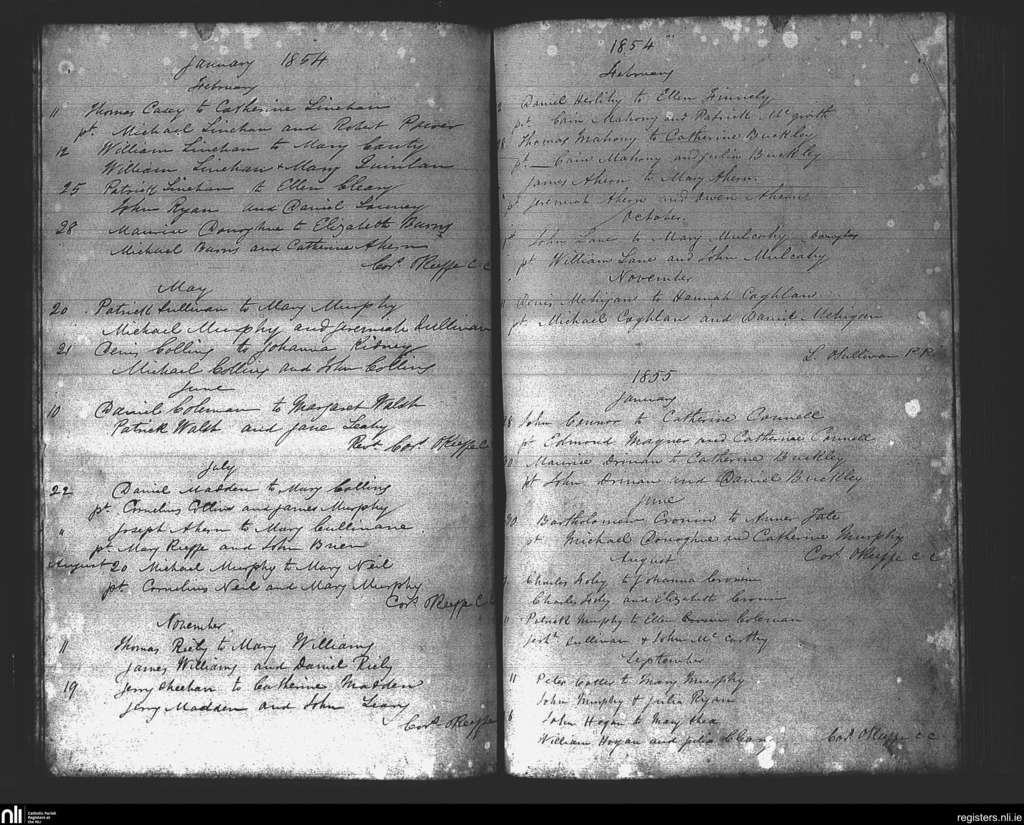 January 1854
February
11 Thomas Casey to Catherine Linehan
pt. Michael Linehan and Robert Power
12 William Linehan to Mary Canty
William Linehan & Mary Quinlan
25 Patrick Linehan to Ellen Cleary
John Ryan and Daniel
28 Maurice Donoghue to Elizabeth Burns
Michael Burns and Catherine Ahern
Cors. OKeeffe C C
May
20 Patrick Sullivan to Mary Murphy
Michael Murphy and Jeremiah Sullivan
21 Denis Collins to Johanna Kidney
Michael Collins and John Collins
June
10 Daniel Coleman to Margaret Walsh
Patrick Walsh and Jane Leahy
Revd. Cors. OKeeffe C
July
22 Daniel Madden to Mary Collins
pt. Cornelius Collins and James Murphy
" Joseph Ahern to Mary Cullinane
pt. Mary Keeffe and John Brien
August 20 Michael Murphy to Mary Neil
pt. Cornelius Neil and Mary Murphy
Cors. OKeeffe C C
November
11 Thomas Riely to Mary Williams
James Williams and Daniel Riely
19 Jerry Sheehan to Catherine Madden
Jerry Madden and John Leary
Cors. OKeeffe
1854
February
Daniel Herlihy to Ellen
pt. Cain Mahony and Patrick McGrath
Thomas Mahony to Catherine Buckley
pt. Cain Mahony and Julia Buckley
James Ahern to Mary Ahern.
pt. Jeremiah Ahern and Owen Ahern
October.
John Lane to Mary Mulcahy
pt. William Lane and John Mulcahy
November
Denis Mehigan to Hannah Coghlan
pt. Michael Coghlan and Daniel Mehigan
L. OSullivan P.P.
1855
January
John Connor to Catherine Connell
pt Edmond Magner and Catherine Connell
Maurice Drinan to Catherine Buckley
pt John Drinan and Daniel Buckley
June
Bartholomew Cronin to
pt Michael Donoghue and Catherine Murphy
Cors. OKeeffe C C
August
Charles Foley to Johanna Cronin
Charles Foley and Elizabeth Cronin
Patrick Murphy to Ellen Coleman
Sullivan & John McCarthy
September
11 Peter Cotter to Mary Murphy
John Murphy & Julia Ryan
6 John Hogan to Mary Shea
William Hogan and Julia
Cors. OKeeffe C C
nli
Catholic Parish
Registers at
the NLI
registers.nli.ie